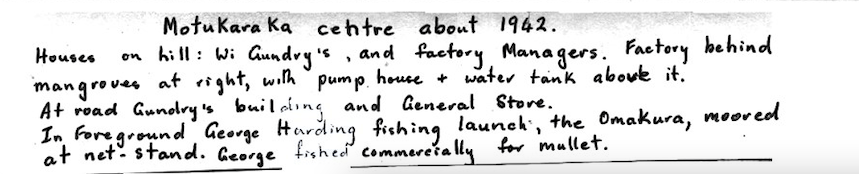 Motukara Ka centre about 1942.
Houses on hill: Wi Gundry's, and factory Managers. Factory behind
mangroves at right, with pump house + water tank above it.
At road Gundry's building and General Store.
In Foreground George Harding fishing launch, the Omakura, moored
at net-stand. George fished commercially for mullet.